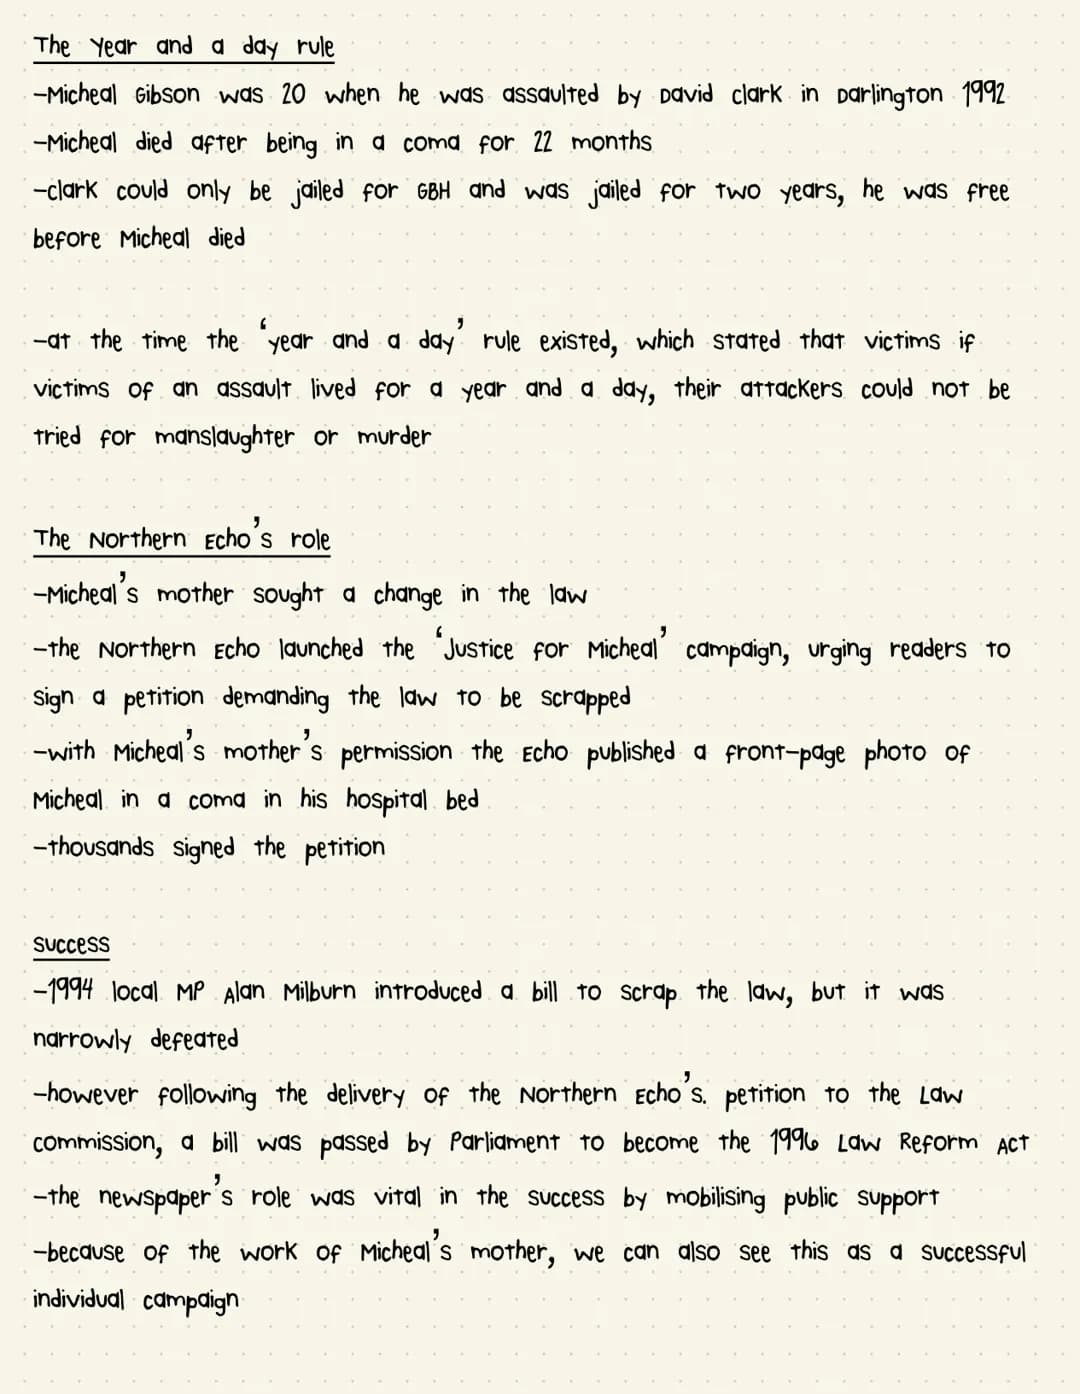 The Year and a day rule
-Micheal Gibson was 20 when he was assaulted by David Clark in Darlington 1992
-Micheal died after being in a coma for 22 months
-Clark could only be jailed for GBH and was jailed for two years, he was free
before Micheal died
-at the time the 'year and a day' rule existed, which stated that victims if
victims of an assault lived for a year and a day, their attackers could not be
tried for manslaughter or murder
The Northern Echo's role
-Micheal's mother sought a change in the law
-the Northern Echo launched the 'Justice for Micheal' campaign, urging readers to
sign a petition demanding the law to be scrapped
-with Micheal's mother's permission the Echo published a front-page photo of
Micheal in a coma in his hospital bed
-thousands signed the petition
Success
-1994 local MP Alan Milburn introduced a bill to scrap the law, but it was
narrowly defeated
-however following the delivery of the Northern Echo's. petition to the Law
commission, a bill was passed by Parliament to become the 1996 Law Reform Act
-the newspaper's role was vital in the success by mobilising public support
-because of the work of Micheal's mother, we can also see this as a successful
individual campaign